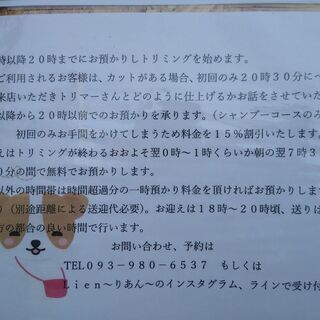 時以降２０時までにお預かりしトリミングを始めます。
ご利用されるお客様は、カットがある場合、初回のみ２０時３０分に〜
来店いただきトリマーさんとどのように仕上げるかお話をさせていた
以降から２０時以前でのお預かりを承ります。（シャンプーコースのみ
初回のみお手間をかけてしまうため料金を１５％割引いたします。
えはトリミングが終わるおおよそ翌０時〜１時くらいか朝の翌７時３
０分の間で無料でお預かりします。
以外の時間帯は時間超過分の一時預かり料金を頂ければお預かりします
り（別途距離による送迎代必要）。お迎えは１８時〜２０時頃、送りは
方の都合の良い時間で行います。
お問い合わせ、予約は
ＴＥＬ０９３−９８０−６５３７　もしくは
Ｌｉｅｎ〜りあん〜のインスタグラム、ラインで受け付